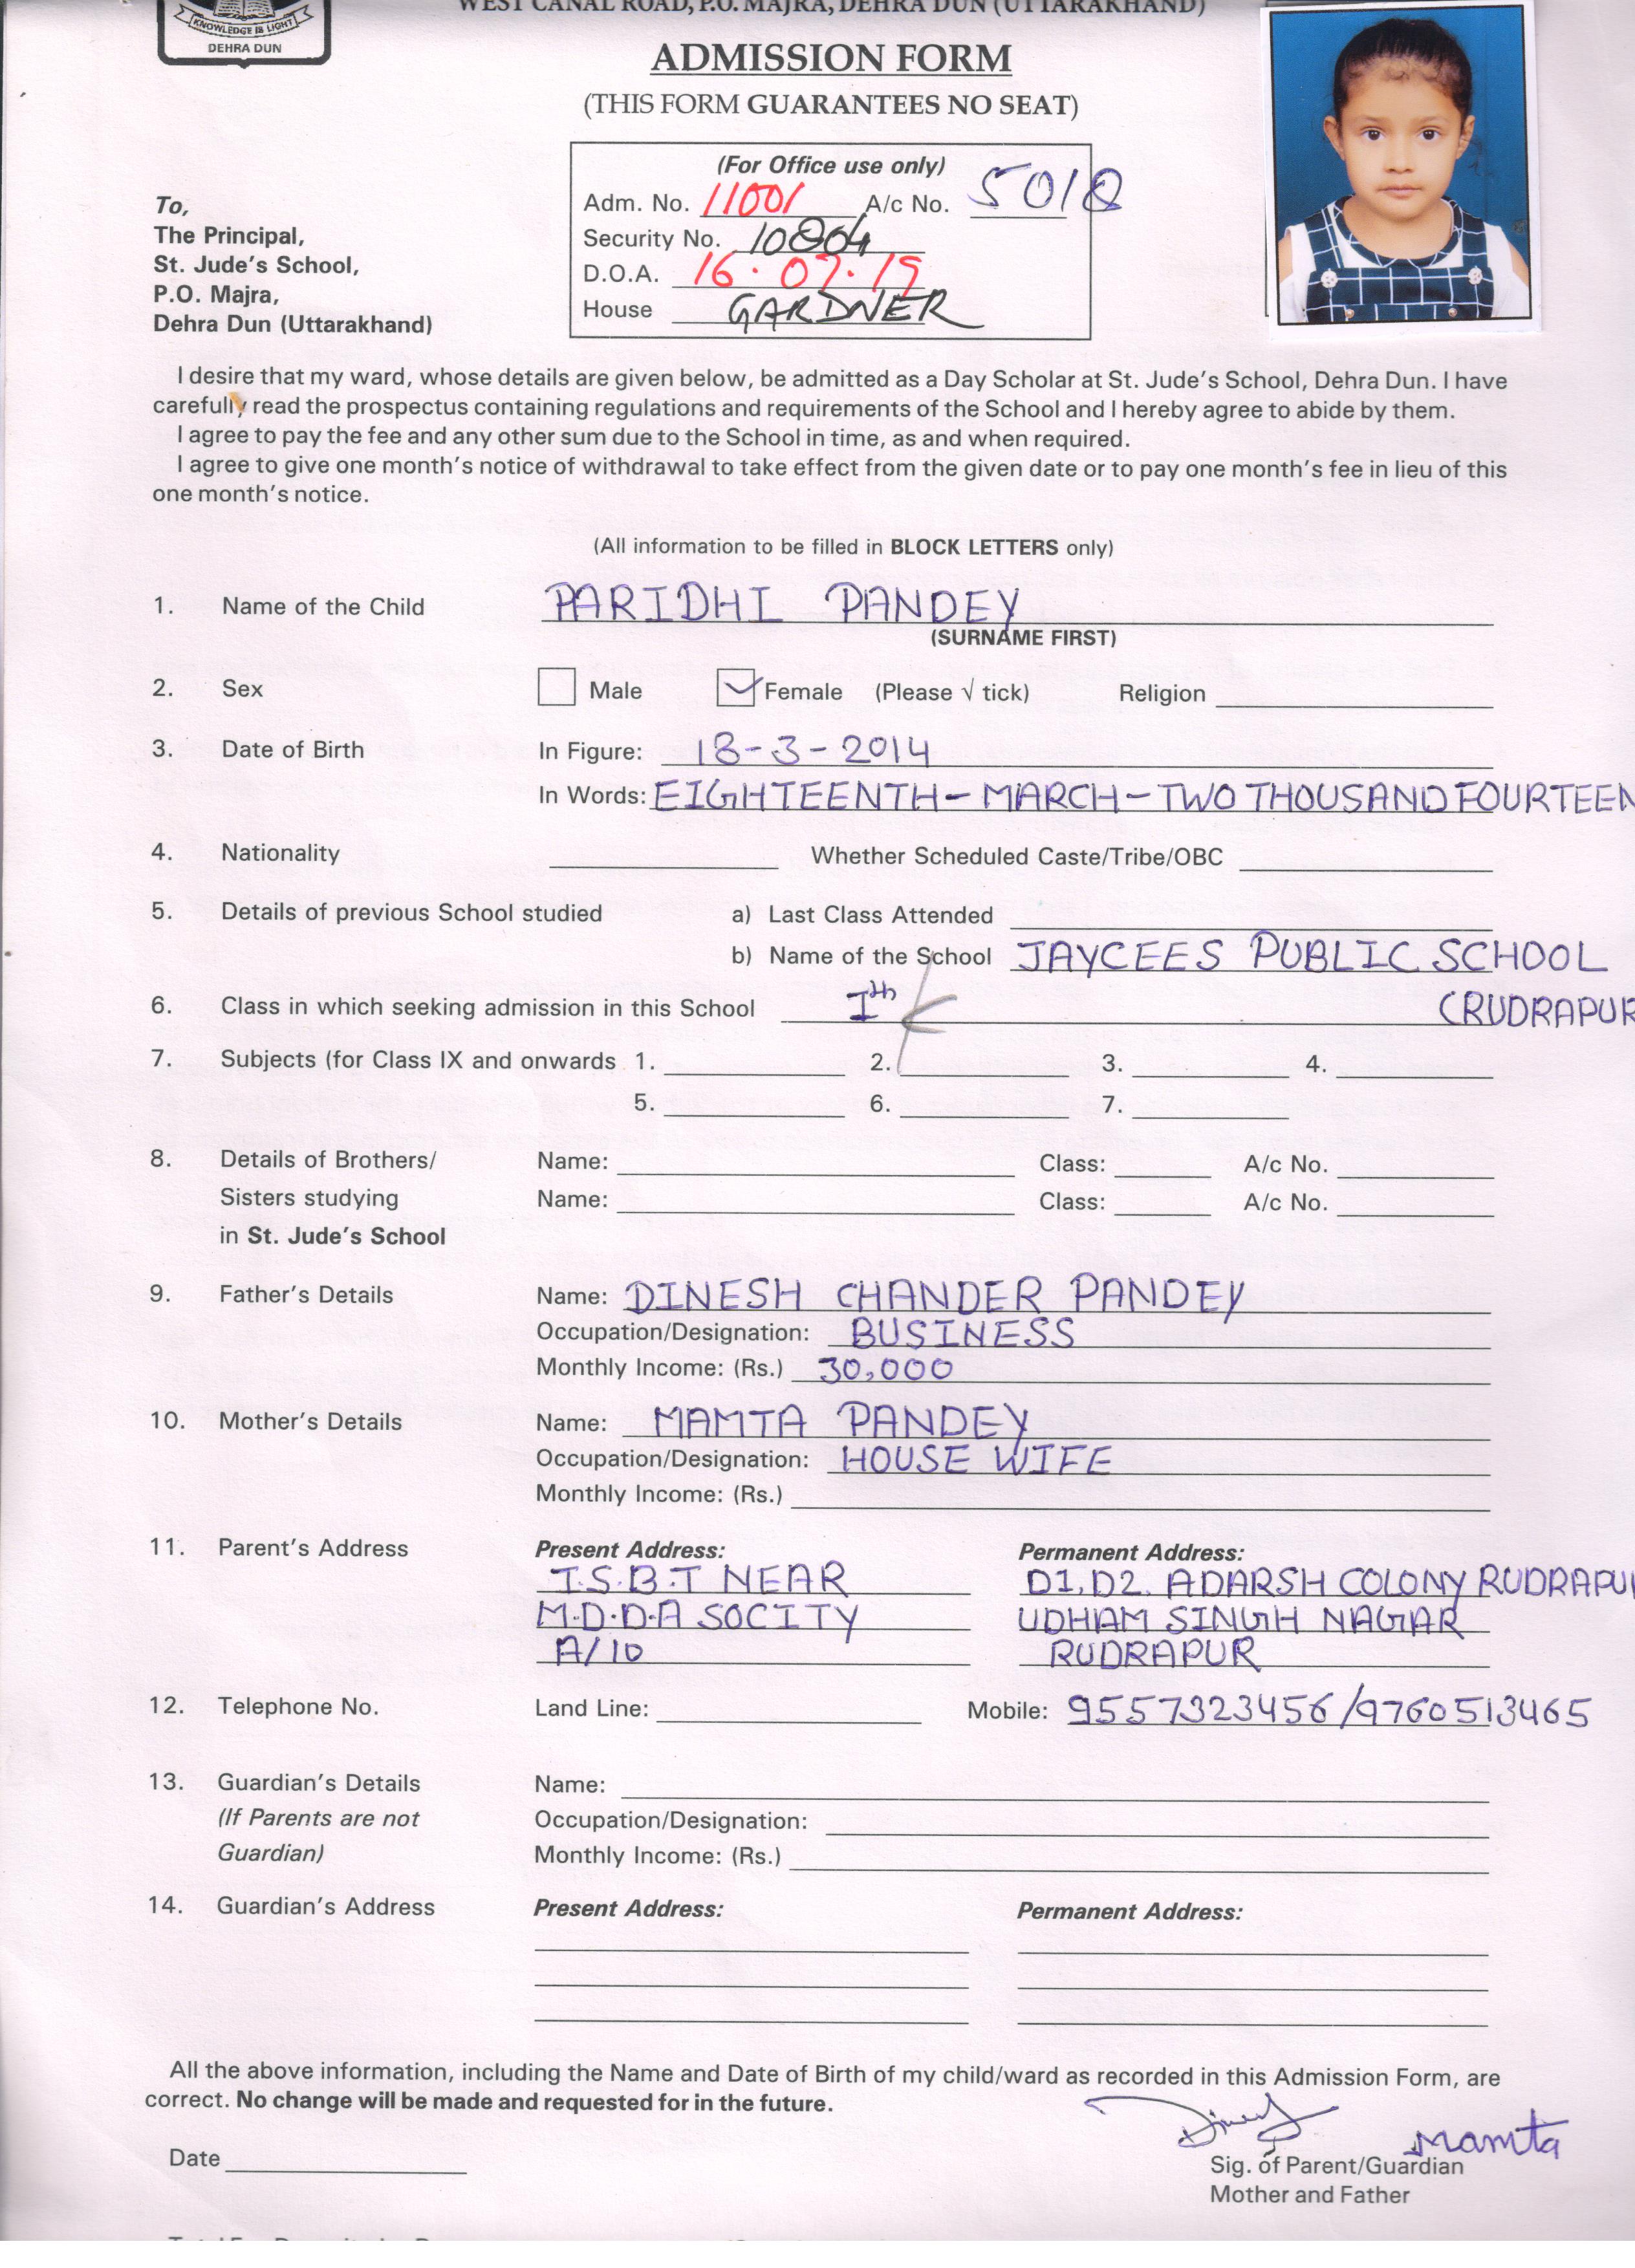 WEST CANAL ROAD, P.O. MAJRA, DEHRA DUN (UTTARAKHAND)
KNOWLEDGE IS LIGHT
DEHRA DUN
ADMISSION FORM
(THIS FORM GUARANTEES NO SEAT)
(For Office use only)
Adm. No. 11001 A/c No. 5018
Security No. 10804
D.O.A. 16.07.19
House GARDNER
To,
The Principal,
St. Jude's School,
P.O. Majra,
Dehra Dun (Uttarakhand)
I desire that my ward, whose details are given below, be admitted as a Day Scholar at St. Jude's School, Dehra Dun. I have
carefully read the prospectus containing regulations and requirements of the School and I hereby agree to abide by them.
I agree to pay the fee and any other sum due to the School in time, as and when required.
I agree to give one month's notice of withdrawal to take effect from the given date or to pay one month's fee in lieu of this
one month's notice.
(All information to be filled in BLOCK LETTERS only)
1. Name of the Child PARIDHI PANDEY
(SURNAME FIRST)
2. Sex Male Female (Please √ tick) Religion
3. Date of Birth In Figure: 18-3-2014
In Words: EIGHTEENTH-MARCH-TWO THOUSAND FOURTEEN
4. Nationality Whether Scheduled Caste/Tribe/OBC
5. Details of previous School studied a) Last Class Attended
b) Name of the School JAYCEES PUBLIC SCHOOL
(RUDRAPUR
6. Class in which seeking admission in this School Ith
7. Subjects (for Class IX and onwards 1. 2. 3. 4.
5. 6. 7.
8. Details of Brothers/ Name: Class: A/c No.
Sisters studying Name: Class: A/c No.
in St. Jude's School
9. Father's Details Name: DINESH CHANDER PANDEY
Occupation/Designation: BUSINESS
Monthly Income: (Rs.) 30,000
10. Mother's Details Name: MAMTA PANDEY
Occupation/Designation: HOUSE WIFE
Monthly Income: (Rs.)
11. Parent's Address Present Address: Permanent Address:
I.S.B.T NEAR D1,D2. ADARSH COLONY RUDRAPU
M.D.D.A SOCITY UDHAM SINGH NAGAR
A/10 RUDRAPUR
12. Telephone No. Land Line: Mobile: 9557323456/9760513465
13. Guardian's Details Name:
(If Parents are not Occupation/Designation:
Guardian) Monthly Income: (Rs.)
14. Guardian's Address Present Address: Permanent Address:
All the above information, including the Name and Date of Birth of my child/ward as recorded in this Admission Form, are
correct. No change will be made and requested for in the future.
Dinesh Mamta
Date Sig. of Parent/Guardian
Mother and Father